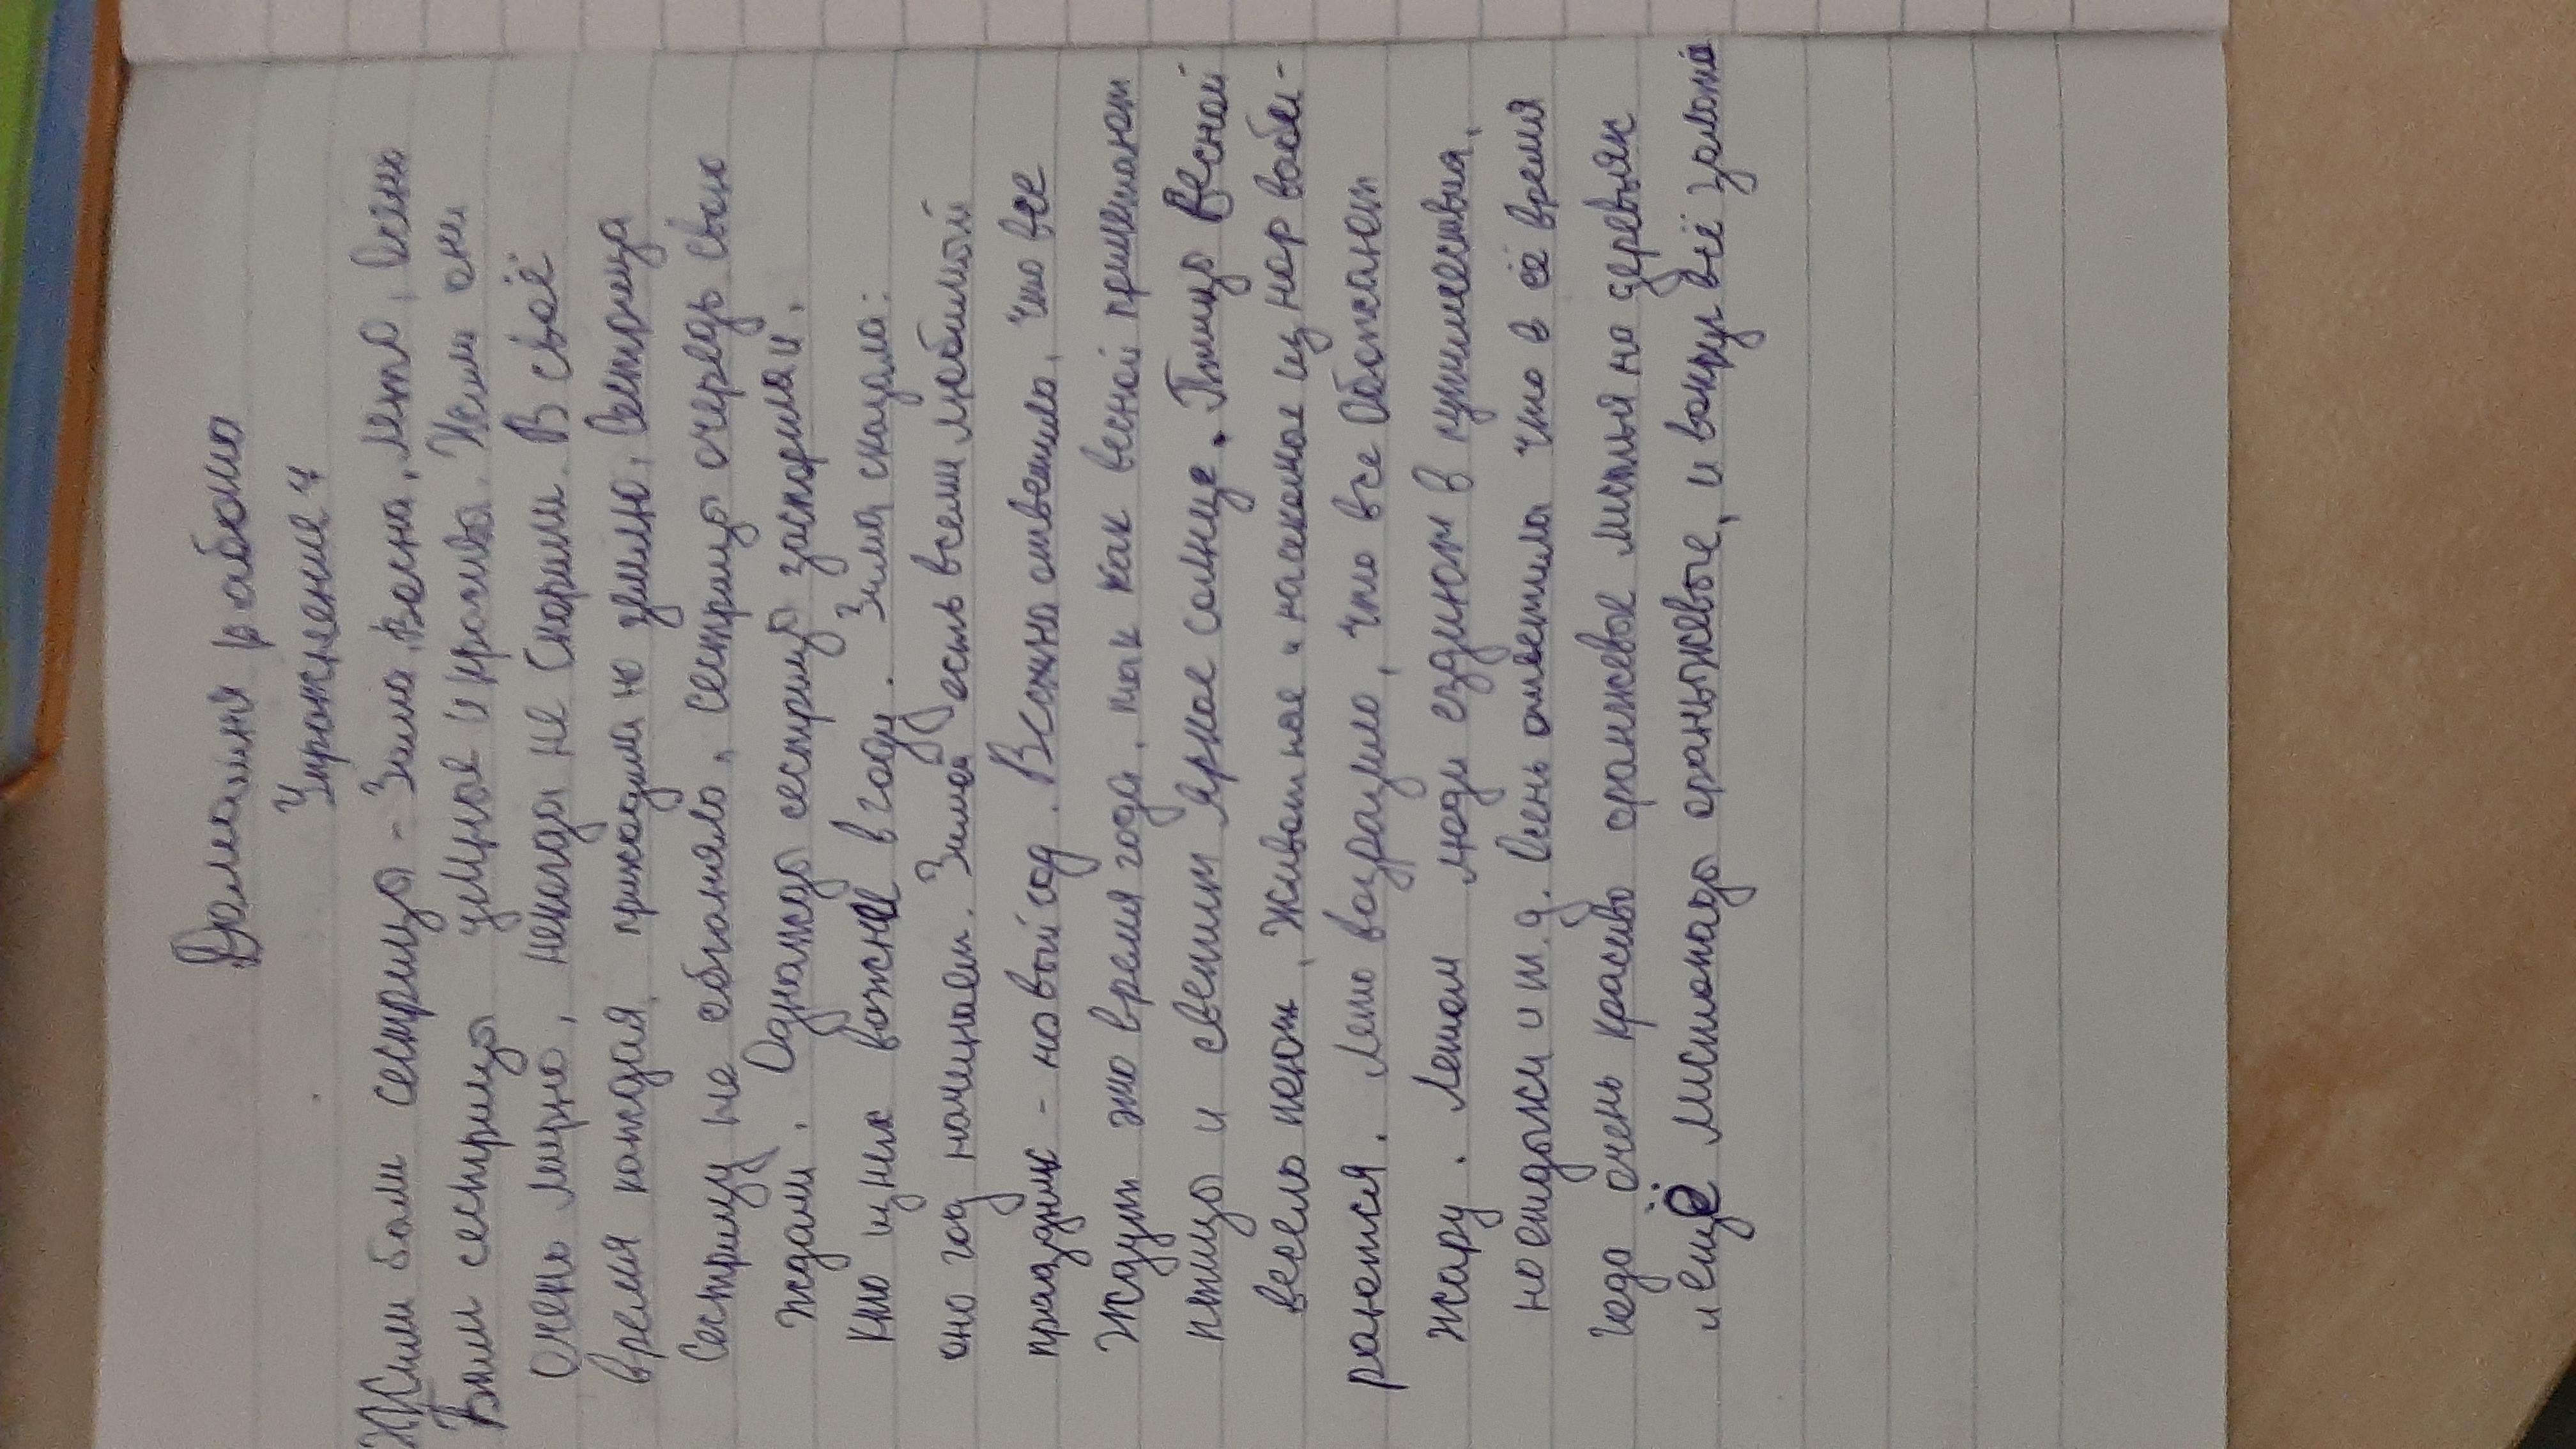 Домашня работа
Упражнение 4
Жили были сестрицы - Зима, Весна, Лето, Осень
Были сестрицы умные и красивы. Жили они
Очень мирно, некогда не спорили. В своё
время каждая, приходила на землю, Сестрица
Сестрицу не обгоняла, сестрицы очередь свою
Ждали. Однажды сестрицы заспорили,
Кто из них важнее в году. Зима сказала:
она год начинает. Зимой есть всеми любимый
праздник - новый год. Весна ответила, что все
Ждут это время года, так как весной прилетают
птицы и светит яркое солнце. Птицы Весной
весело поют, Животные и насекомое из нор выби-
раются. Лето возразило, что все Обожают
жару. Летом люди ездиют в путишествия,
на отдыхи и т.д. Осень ответила что в её время
года очень красиво оранжевые листья на деревьях
и ещё листопады ораньжевые, и вокруг всё золотое